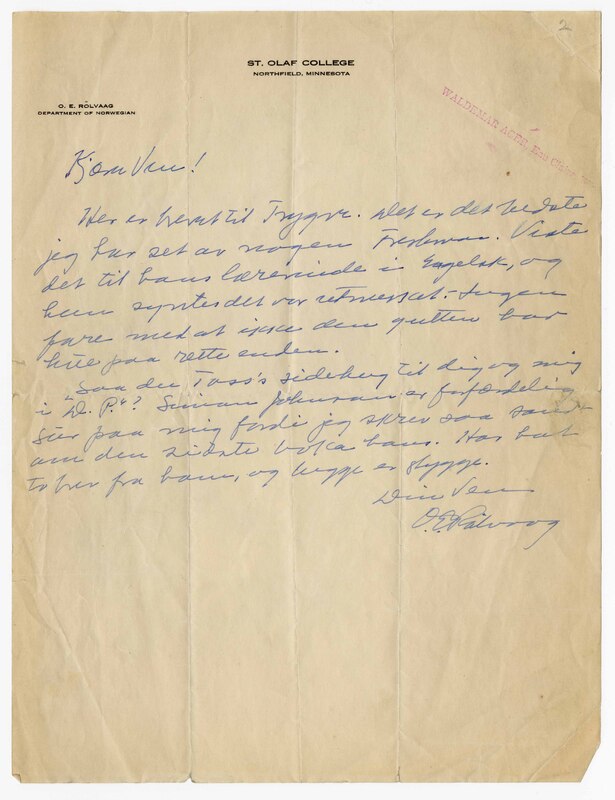 2
ST. OLAF COLLEGE
NORTHFIELD, MINNESOTA
O. E. RÖLVAAG
DEPARTMENT OF NORWEGIAN
WALDEMAR AGER, Eau Claire,
Kjære Ven!
Her er brevet til Trygve. Det er det bedste
jeg har set av nogen Freshman. Viste
det til hans lærerinde i Engelsk, og
hun syntes det var utmerket. Ingen
fare med at ikke den gutten har
hue paa rette enden.
"Saa du Tass's sidehug til dig og mig
i D. P."? Simon Johnson er forfærdelig
sur paa mig fordi jeg skrev saa sandt
om den sidste boka hans. Har hat
to brev fra ham, og begge er stygge.
Din Ven
O. E. Rölvaag